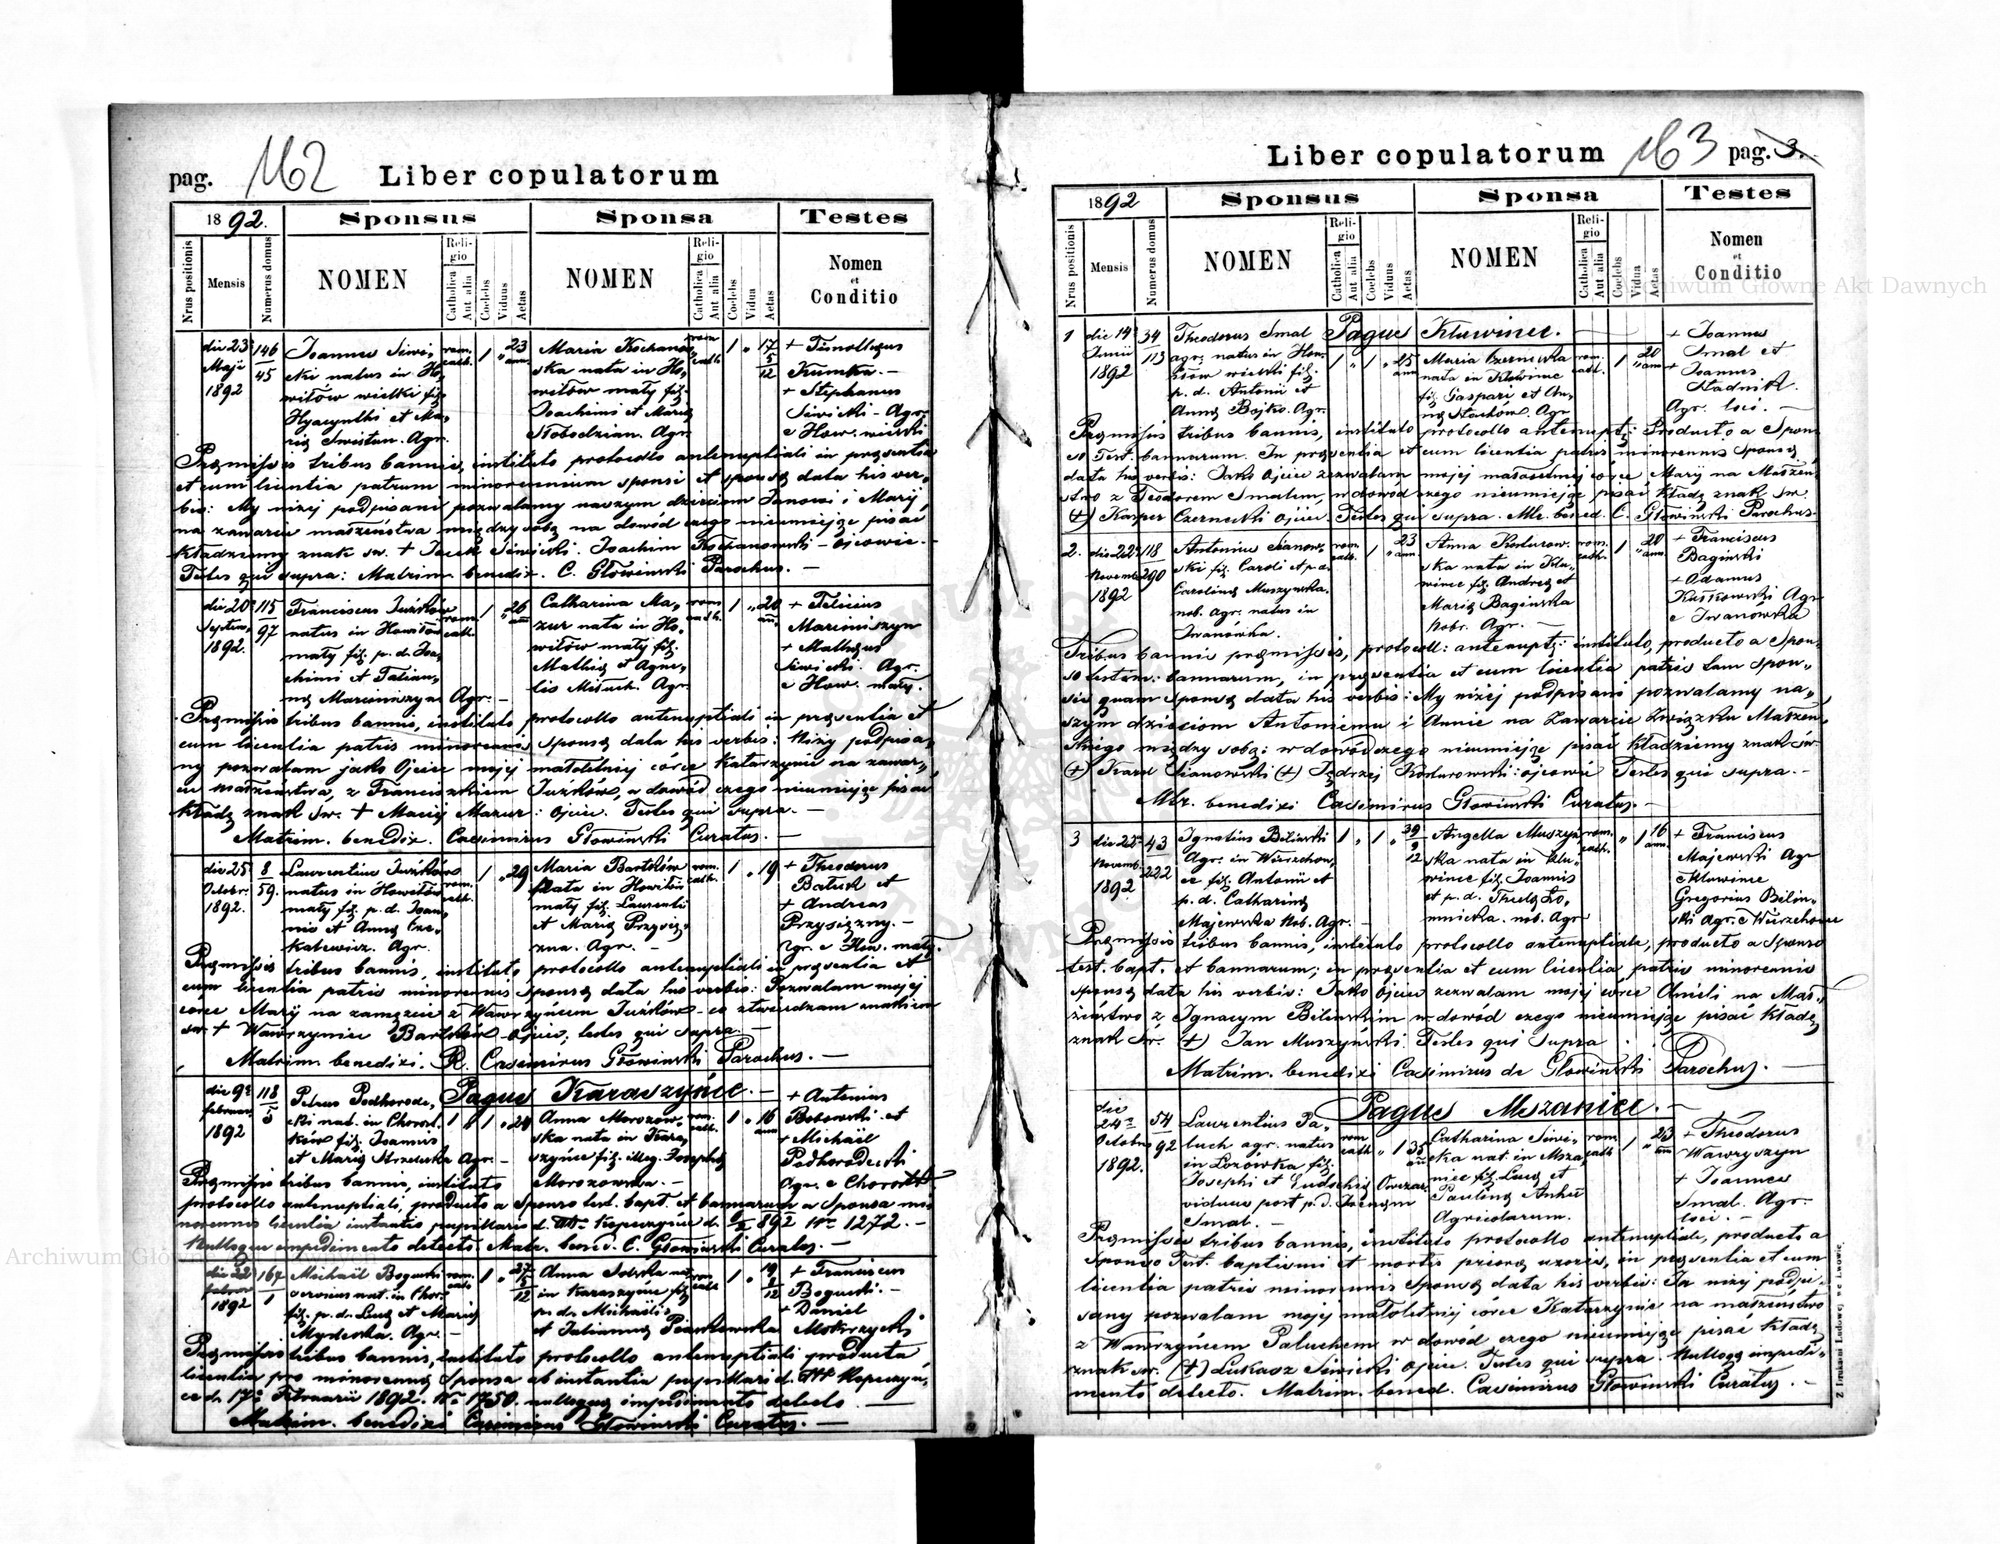 pag. 162 Liber copulatorum
1892. Sponsus Sponsa Testes
Nrus positionis Mensis Numerus domus NOMEN Religio Catholica Aut alia Coelebs Viduus Aetas NOMEN Religio Catholica Aut alia Coelebs Vidua Aetas Nomen et Conditio
die 23 Maji 1892
146 45
Joannes Siwi-
cki natus in Ho-
witów wielki fil.
Hyacynthi et Ma-
riæ Agr.
rom. cath. 1 " 23 ann.
Maria Kochanow-
ska nata in Ho-
witów mały fil.
Joachimi et Mariæ
Słobodzian. Agr.
rom. cath. 1 " 17 5/12
+ Timotheus
Kumka. —
+ Stephanus
Siwicki - Agr.
e How. wielki
Præmissis tribus bannis, instituto protocollo antenuptiali in præsentia
et cum licentia patrum minorennium sponsi et sponsæ data his ver-
bis: My niżej podpisani pozwalamy naszym dzieciom Janowi i Marÿ
na zawarcie małżeństwa między sobą na dowód czego nieumiejąc pisać
kładziemy znak św. + Jacek Siwicki. Joachim Kochanowski - ojcowie. —
Testes qui supra: Matrim. benedix. C. Głowiński Parochus. —
die 20 Septem. 1892.
115 97
Franciscus Juzków
natus in Howitów
mały fil. p. d. Joa-
chimi et Tatian-
næ Marciniszyn Agr. —
rom. cath. 1 " 26 ann
Catharina Ma-
zur nata in Ho-
witów mały fil.
Mathiæ et Agne-
tis Misiuk. Agr.
rom. cath. 1 " 20 ann.
+ Felicius
Marciniszyn
+ Mathæus
Siwicki. Agr.
e How. mały.
Præmissis tribus bannis, instituto protocollo antenuptiali in præsentia et
cum licentia patris minorennis sponsæ data his verbis: Niżej podpisa-
ny pozwalam jako Ojciec mojej małoletniej córce Katarzynie na zawar-
cie małżeństwa, z Franciszkiem Juzków, a dowód czego nieumiejąc pisać
kładę znak św. + Maciej Mazur: ojciec. Testes qui supra. —
Matrim. benedix. Casimirus Głowiński Curatus. —
die 25 Octobr. 1892.
8 59.
Laurentius Juzków
natus in Howitów
mały fil. p. d. Joan-
nis et Annæ
Agr.
rom. cath. 1 " 29
Maria Bartków
nata in Howitów
mały fil. Laurentii
et Mariæ Przysię-
zna. Agr. —
rom. cath. 1 " 19
+ Theodorus
Baluk et
+ Andreas
Przysiężny. —
Agr. e How. mały.
Præmissis tribus bannis, instituto protocollo antenuptiali in præsentia et
cum licentia patris minorennis sponsæ data his verbis: Pozwalam mojej
córce Marÿ na zamęście z Wawrzyńcem Juzków - co ztwierdzam znakiem
św. + Wawrzyniec Bartków - Ojciec, testes qui supra. —
Matrim. benedixi. R. Casimirus Głowiński Parochus. —
Pagus Karaszyńce. —
die 9 februar. 1892
118 5
Petrus Podhorode-
cki nat. in Chorost-
ków fil. Joannis
et Mariæ Strzelecka Agr. —
1 1 " 24
Anna Morozow-
ska nata in Kara-
szyńce fil. illeg. Josephæ
Morozowska. —
rom. cath. 1 " 16 ann
+ Antonius
Bobowski et
+ Michaël
Podhorodecki
Agr. e Chorostk.
Præmissis tribus bannis, instituto
protocollo antenuptiali, producto a Sponso test. bapt. et bannarum a Sponsa mi-
norennis licentia instantis pupillaris d. Kopeczyńce d. 892 Nr. 1272. —
Nulloque impedimento detecto. Matr. bened. C. Głowiński Curatus. —
die 22 februar 1892
167 1
Michaël Bogucki
nat. in Chor.
fil. p. d. Lucæ et Mariæ
Agr. —
rom. cath. 1 " 27 5/12
Anna nat.
in Karaszyńce fil.
p. d. Michaëlis
et Julianna Piontkowska
rom. cath. 1 " 19 1/12
+ Franciscus
Bogucki. —
+ Daniel
Mokrzycki
Præmissis tribus bannis, instituto protocollo antenuptiali producta
licentia pro minorennæ Sponsa ab instantia pupillari d. Kopeczyń-
ce d. 17 Februarii 1892. Nr. 1750. nulloque impedimento detecto. —
Matrim. benedixi Casimirus Głowiński Curatus. —
Liber copulatorum 163 pag. 3.
1892 Sponsus Sponsa Testes
Nrus positionis Mensis Numerus domus NOMEN Religio Catholica Aut alia Coelebs Viduus Aetas NOMEN Religio Catholica Aut alia Coelebs Vidua Aetas Nomen et Conditio
Pagus Kluwince. —
1 die 14 Junii 1892
34 113
Theodorus Smal
agr. natus in How-
itów wielki fil.
p. d. Antonii et
Annæ Bojko. Agr.
1 " 1 " 25 ann
Maria Czernecka
nata in Kluwince
fil. Gaspari et An-
næ Stachów. Agr
rom. cath. 1 " 20 ann
+ Joannes
Smal et
+ Joannes
Stadnik.
Agr. loci. —
Præmissis tribus bannis, instituto protocollo antenupt: Producto a Spon-
so Test. bannarum. In præsentia et cum licentia patris minorennis sponsæ
data his verbis: Jako Ojciec zezwalam mojej małoletniej córce Marÿ na Małżeń-
stwo z Teodorem Smalem, w dowód czego nieumiejąc pisać kładę znak św.
(+) Kasper Czernecki ojciec. Testes qui supra. Mtr. bened. C. Głowiński Parochus.
2. die 22 Novemb 1892
118 290
Antonius Sianow-
ski fil. Caroli et p.d.
Carolinæ Muszynska.
nob. agr. natus in
Iwanówka.
rom. cath. 1 " 23 ann.
Anna Kosturow-
ska nata in Klu-
wince fil. Andreæ et
Mariæ Baginska
Nobr. Agr. —
rom. cath. 1 " 20 ann
+ Franciscus
Baginski
+ Adamus
Kuszkowski Agr
e Iwanówka
Tribus bannis præmissis, protocoll: antenupt: instituto, producto a Spon-
so testim: bannarum, in præsentia et cum licentia patris tam spon-
si quam sponsæ data his verbis: My niżej podpisani pozwalamy na-
szym dzieciom Antoniemu i Annie na zawarcie związku Małżeń-
skiego między sobą: w dowód czego nieumiejąc pisać kładziemy znak św.
(+) Karol Sianowski (+) Jędrzej Kosturowski: ojcowie Testes qui supra. —
Mtr. benedixi Casimirus Głowiński Curatus. —
3 die 22 Novemb. 1892
43 222
Ignatius Biliński
Agr. in Wierzchow-
ce fil. Antonii et
p. d. Catharinæ
Majewska Nob. Agr. —
1 " 1 " 39 9/12
Angella Muszyń-
ska nata in Klu-
wince fil. Joannis
et p. d. Theclæ Ło-
mnicka. nob. Agr
rom. cath. " 1 16 ann.
+ Franciscus
Majewski Agr
e Kluwince
Gregorius Bilin-
ski agr. e Wierzchowce
Præmissis tribus bannis, instituto protocollo antenuptiale, producto a Sponso
test. bapt. et bannarum; in præsentia et cum licentia patris minorennis
sponsæ data his verbis: Jako Ojciec zezwalam mojej córce Anieli na Mał-
żeństwo z Ignacym Bilińskim w dowód czego nieumiejąc pisać kładę
znak św. (+) Jan Muszyński. Testes qui supra
Matrim. benedixi Casimirus de Głowiński Parochus. —
Pagus Mszaniec. —
die 24 Octobris 1892.
54 92
Laurentius Pa-
luch agr. natus
in Lozówka fil.
Josephi et Eudochiæ Owczar.
viduus post p. d.
Smal. —
rom cath " 1 35 ann
Catharina Siwi-
cka nat. in Msza-
niec fil. Lucæ et
Paulinæ
Agricolarum.
rom. cath 1 " 23 ann
+ Theodorus
Wawryszyn
+ Joannes
Smal. Agr.
loci. —
Præmissis tribus bannis, instituto protocollo antenuptiale, producto a
Sponso Test. baptismi et mortis prioris uxoris, in præsentia et cum
licentia patris minorennis Sponsæ data his verbis: Ja niżej podpi-
sany pozwalam mojej małoletniej córce Katarzynie na małżeństwo
z Wawrzyńcem Paluchem w dowód czego nieumiejąc pisać kładę
znak św. (+) Łukasz Siwicki ojciec. Testes qui supra. Nulloque impedi-
mento detecto. Matrim. bened. Casimirus Głowiński Curatus. —
Z Drukarni Ludowej we Lwowie.
Archiwum Główne Akt Dawnych
Archiwum Główne Akt Dawnych